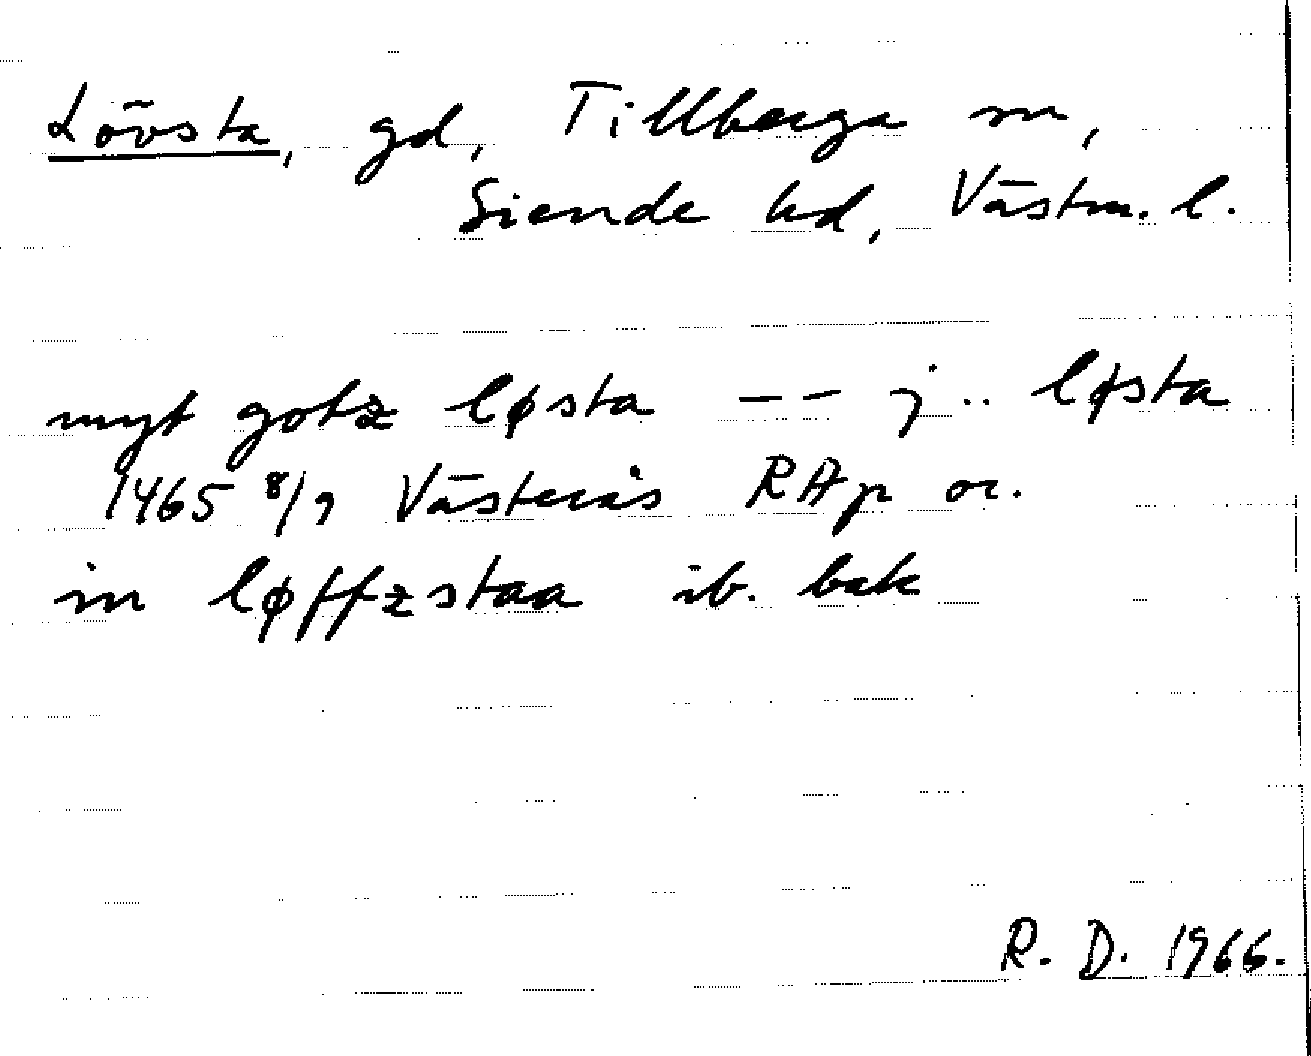 Lövsta, gd, Tillberga sn,
Siende hd, Västm. l.
myt gotz løsta -- j .. løsta
1465 8/9 Västerås RAp or.
in løffzstaa ib. bak
R. D. 1966.